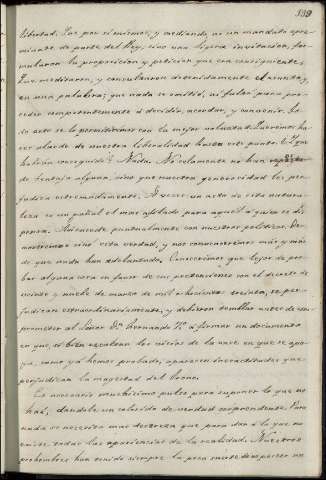 339
libertad. Que por sí mismos, y mediando, no un mandato apre-
miante de parte del Rey, sino una ligera invitacion, for-
mularon la proposicion y peticion que era consiguiente.
Que meditaron, y consultaron detenidamente el asunto, y
en una palabra; que nada se omitió, ni faltó para pro-
ceder competentemente á decidir, acordar, y convenir. En
ese acto se lo permitiremos con la mejor voluntad. Queremos ha-
cer alarde de nuestra liberalidad hasta este punto. ¿Y que
habrán conseguido? Nada. No solamente no han
ventaja alguna, sino que nuestra generosidad les per-
judica estremadamente. Á veces un acto de esta natura-
leza es un puñal el mas afilado para aquel á quien se dis-
pensa. Asi sucede puntualmente con nuestros políticos. De-
mostremos sino esta verdad, y nos convenceremos mas y mas
de que nada han adelantado. Conocerémos que lejos de pro-
bar alguna cosa en favor de sus pretensiones con el decreto de
veinte y nueve de marzo de mil ochocientos treinta, se per-
judican extraordinariamente, y debieron temblar antes de com-
prometer al Señor Dn. Fernando 7º á firmar un documento
en que, si bien recalcan los vicios de la
ya, como ya hemos probado, aparecen inexactitudes que
perjudican la magestad del trono.
Es necesario muchísimo pulso para suponer lo que no
hay, dandole un colorido de verdad sorprendente. Para
nada se necesita mas destreza que para dar á lo que no
existe todas las apariencias de la realidad. Nuestros
prohombres han tenido siempre la poca suerte de aparecer no